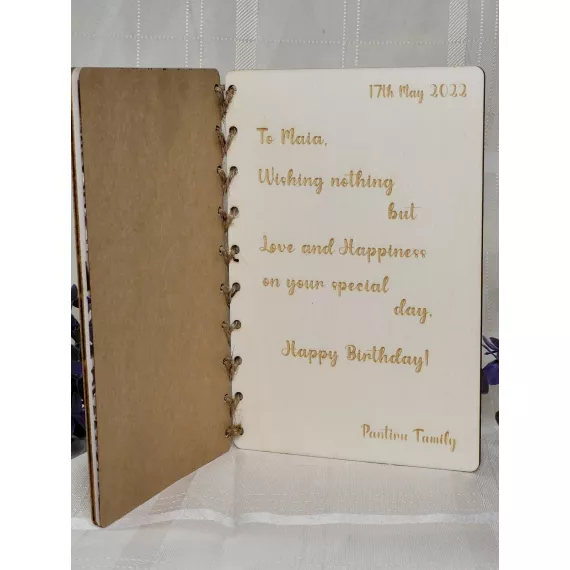 17th May 2022
To Maia,
Wishing nothing
but
Love and Happiness
on your special
day.
Happy Birthday!
Family